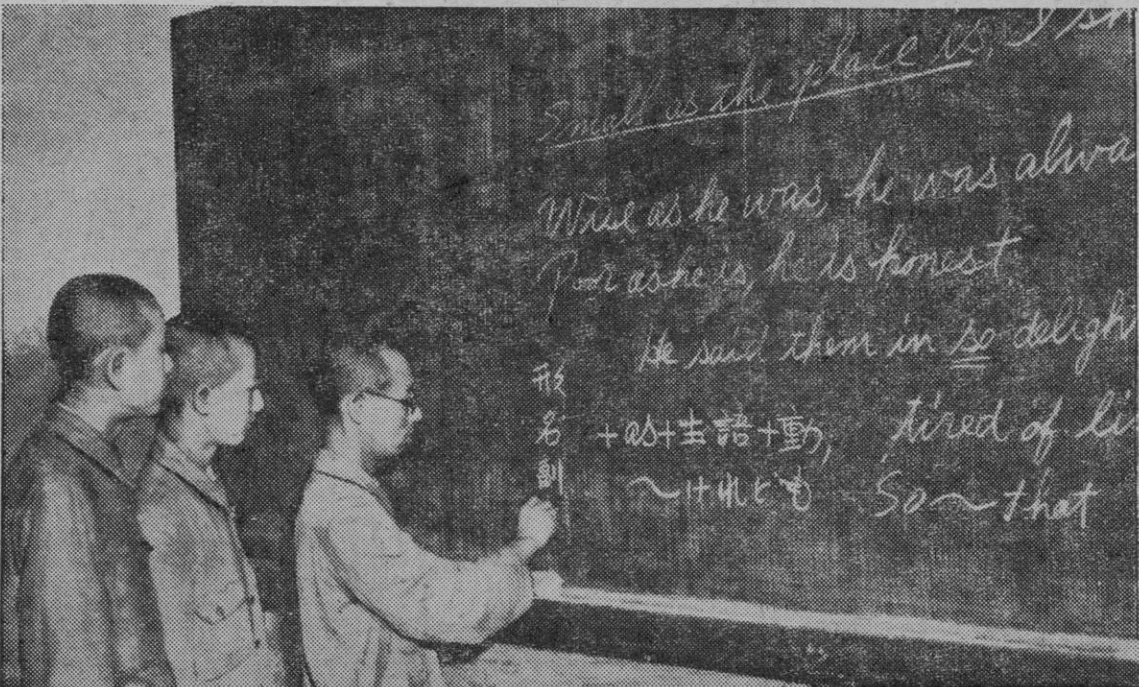 Small as the place is, I sh
Wise as he was, he was alwa
Poor as he is, he is honest.
He said them in so deligh
形
名 +as+主語+動, tired of li
副 〜けれども So〜that